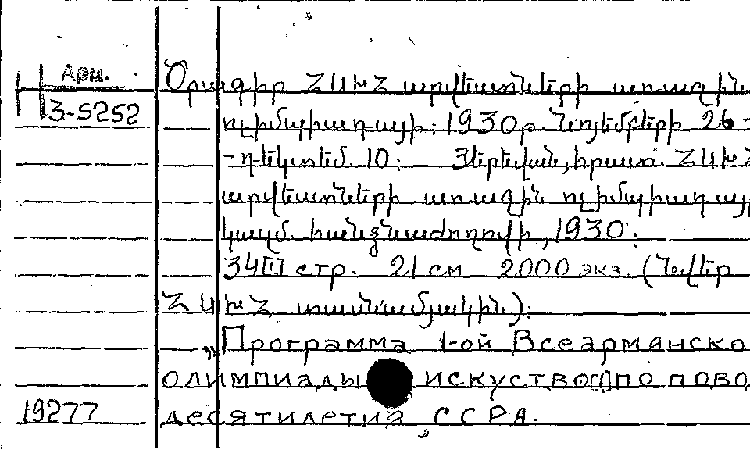 Арм.
3-5252
Օրագիր ՀԱԽՀ արվեստների առաջին
ոլիմպիադայի: 1930թ. Նոյեմբերի 26-
-դեկտեմ. 10: Յերեվան, հրատ. ՀԱԽՀ
արվեստների առաջին ոլիմպիադայի
կազմ. հանձնաժողովի, 1930:
34[1] стр. 21 см 2000 экз. (Նվեր
ՀԱԽՀ տասնամյակին):
„Программа 1-ой Всеарманско
олимпиады искуство[] по пово
19277 десятилетия ССРА.„